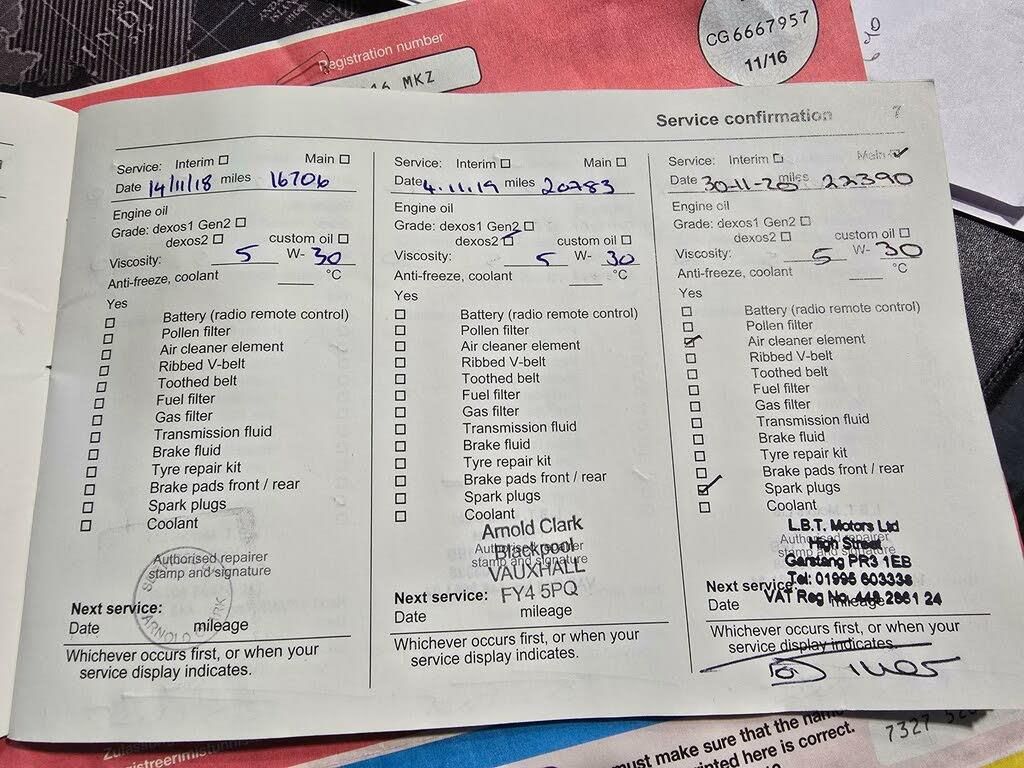 Registration number
16 MKZ
CG6667957
11/16
Service confirmation 7
Service: Interim Main
Date 14/11/18 miles 16706
Engine oil
Grade: dexos1 Gen2
dexos2 custom oil
Viscosity: 5 W- 30
Anti-freeze, coolant °C
Yes
Battery (radio remote control)
Pollen filter
Air cleaner element
Ribbed V-belt
Toothed belt
Fuel filter
Gas filter
Transmission fluid
Brake fluid
Tyre repair kit
Brake pads front / rear
Spark plugs
Coolant
Authorised repairer
stamp and signature
ARNOLD CLARK
Next service:
Date mileage
Whichever occurs first, or when your
service display indicates.
Service: Interim Main
Date 4.11.19 miles 20783
Engine oil
Grade: dexos1 Gen2
dexos2 custom oil
Viscosity: 5 W- 30
Anti-freeze, coolant °C
Yes
Battery (radio remote control)
Pollen filter
Air cleaner element
Ribbed V-belt
Toothed belt
Fuel filter
Gas filter
Transmission fluid
Brake fluid
Tyre repair kit
Brake pads front / rear
Spark plugs
Coolant
Arnold Clark
Authorised repairer
Blackpool
stamp and signature
VAUXHALL
FY4 5PQ
Next service:
Date mileage
Whichever occurs first, or when your
service display indicates.
Service: Interim Main
Date 30-11-20 miles 22390
Engine oil
Grade: dexos1 Gen2
dexos2 custom oil
Viscosity: 5 W- 30
Anti-freeze, coolant °C
Yes
Battery (radio remote control)
Pollen filter
Air cleaner element
Ribbed V-belt
Toothed belt
Fuel filter
Gas filter
Transmission fluid
Brake fluid
Tyre repair kit
Brake pads front / rear
Spark plugs
Coolant
L.B.T. Motors Ltd
Authorised repairer
High Street
stamp and signature
Garstang PR3 1EB
Tel: 01995 603336
Next service:
VAT Reg No. 448 2861 24
Date mileage
Whichever occurs first, or when your
service display indicates.
must make sure that the
printed here is correct.
7327